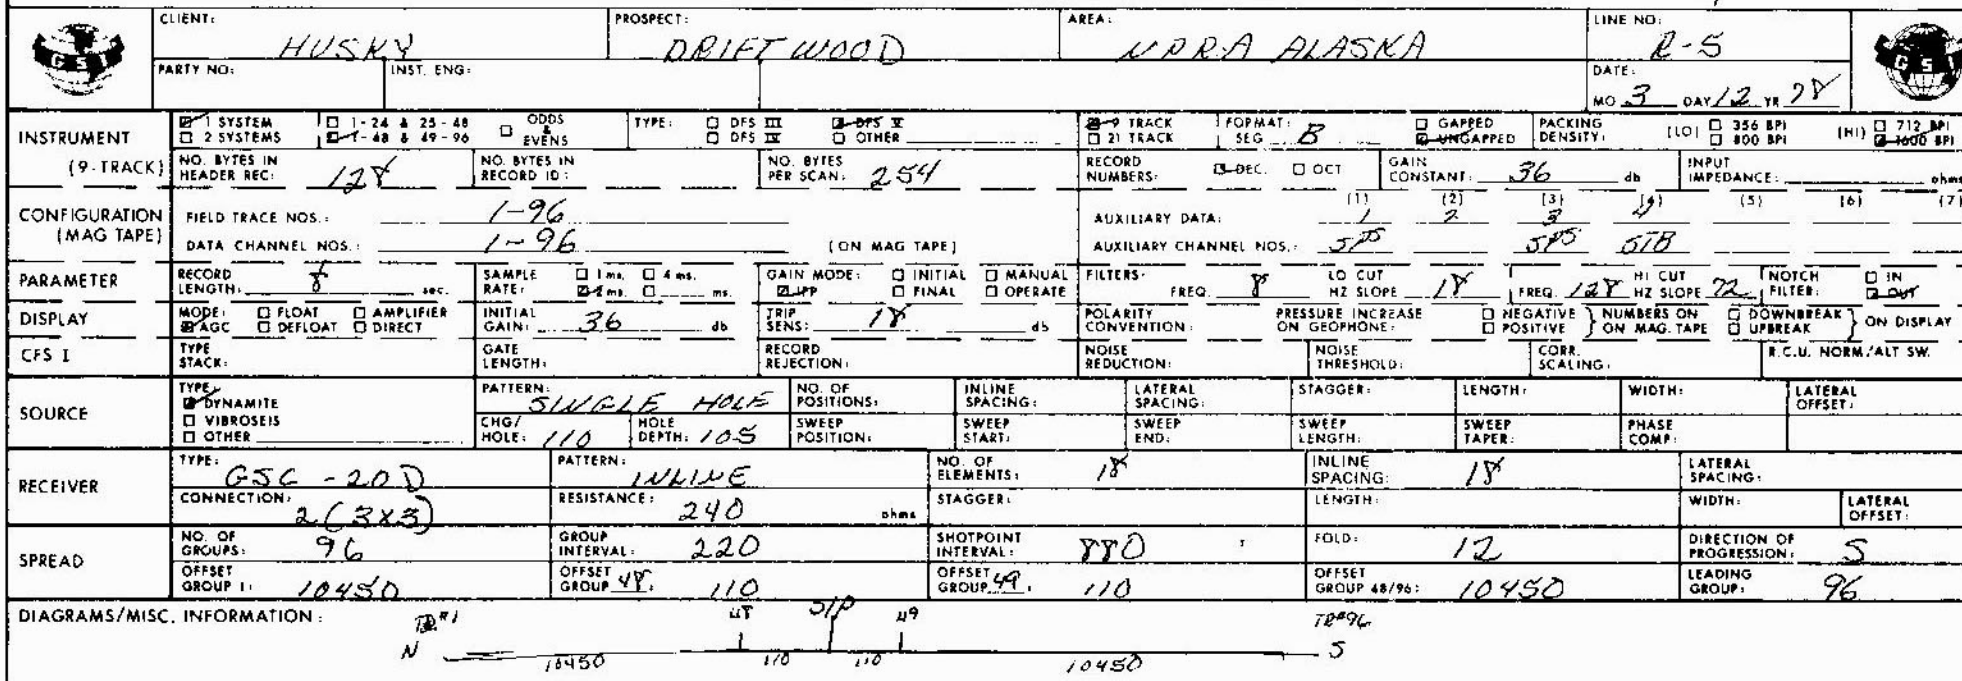 CLIENT: HUSKY PROSPECT: DRIFTWOOD AREA: NPRA ALASKA LINE NO: R-5
GSI GSI
PARTY NO: INST. ENG: DATE:
MO 3 DAY 12 YR 78
INSTRUMENT 1 SYSTEM 1-24 & 25-48 ODDS & EVENS TYPE: DFS III DFS V 9 TRACK FORMAT: GAPPED PACKING (LO) 356 BPI (HI) 712 BPI
2 SYSTEMS 1-48 & 49-96 DFS IV OTHER 21 TRACK SEG B UNGAPPED DENSITY: 800 BPI 1600 BPI
(9-TRACK) NO. BYTES IN HEADER REC: 128 NO. BYTES IN RECORD ID: NO. BYTES PER SCAN: 254 RECORD NUMBERS: DEC. OCT GAIN CONSTANT: 36 db INPUT IMPEDANCE: ohms
(1) (2) (3) (4) (5) (6) (7)
CONFIGURATION FIELD TRACE NOS.: 1-96 AUXILIARY DATA: 1 2 3 4
(MAG TAPE) DATA CHANNEL NOS.: 1-96 (ON MAG TAPE) AUXILIARY CHANNEL NOS.:
PARAMETER RECORD LENGTH: 8 sec. SAMPLE RATE: 1 ms. 4 ms. 2 ms. ms. GAIN MODE: INITIAL MANUAL IFP FINAL OPERATE FILTERS: FREQ. 8 LO CUT HZ SLOPE 18 FREQ. 128 HI CUT HZ SLOPE 72 NOTCH FILTER: IN OUT
DISPLAY MODE: FLOAT AMPLIFIER AGC DEFLOAT DIRECT INITIAL GAIN: 36 db TRIP SENS: 18 db POLARITY CONVENTION: PRESSURE INCREASE ON GEOPHONE: NEGATIVE POSITIVE } NUMBERS ON ON MAG. TAPE DOWNBREAK UPBREAK } ON DISPLAY
CFS I TYPE STACK: GATE LENGTH: RECORD REJECTION: NOISE REDUCTION: NOISE THRESHOLD: CORR. SCALING: R.C.U. NORM/ALT SW.
SOURCE TYPE: DYNAMITE PATTERN: SINGLE HOLE NO. OF POSITIONS: INLINE SPACING: LATERAL SPACING: STAGGER: LENGTH: WIDTH: LATERAL OFFSET:
VIBROSEIS OTHER CHG/HOLE: 110 HOLE DEPTH: 105 SWEEP POSITION: SWEEP START: SWEEP END: SWEEP LENGTH: SWEEP TAPER: PHASE COMP:
RECEIVER TYPE: GSC-20D PATTERN: INLINE NO. OF ELEMENTS: 18 INLINE SPACING: 18 LATERAL SPACING:
CONNECTION: 2(3X3) RESISTANCE: 240 ohms STAGGER: LENGTH: WIDTH: LATERAL OFFSET:
SPREAD NO. OF GROUPS: 96 GROUP INTERVAL: 220 SHOTPOINT INTERVAL: 880 ' FOLD: 12 DIRECTION OF PROGRESSION: S
OFFSET GROUP 1: 10450 OFFSET GROUP 48: 110 OFFSET GROUP 49: 110 OFFSET GROUP 48/96: 10450 LEADING GROUP: 96
DIAGRAMS/MISC. INFORMATION: TR#1 48 S/P 49 TR#96
N 10450 110 110 10450 S